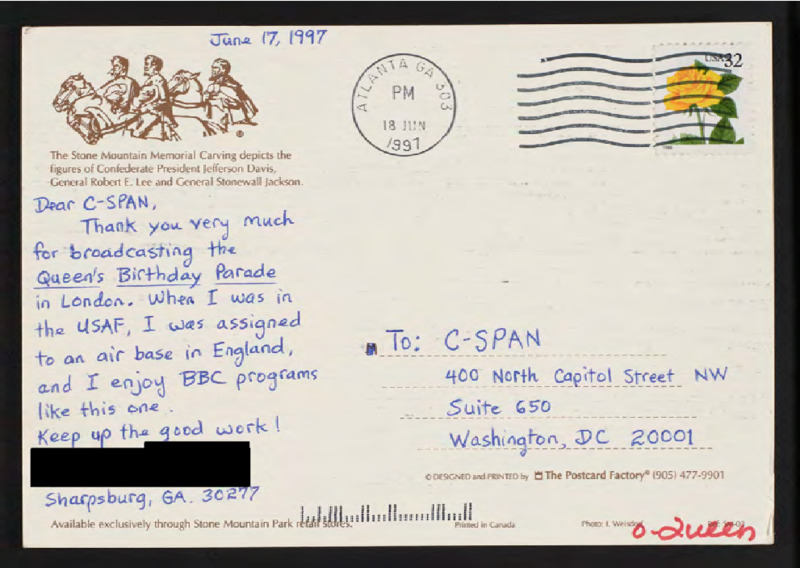 June 17, 1997
The Stone Mountain Memorial Carving depicts the
figures of Confederate President Jefferson Davis,
General Robert E. Lee and General Stonewall Jackson.
Dear C-SPAN,
Thank you very much
for broadcasting the
Queen's Birthday Parade
in London. When I was in
the USAF, I was assigned
to an air base in England,
and I enjoy BBC programs
like this one.
Keep up the good work!
Sharpsburg, GA. 30277
Available exclusively through Stone Mountain Park retail stores.
ATLANTA GA 303
PM
18 JUN
1997
USA 32
To: C-SPAN
400 North Capitol Street NW
Suite 650
Washington, DC 20001
© DESIGNED and PRINTED by The Postcard Factory® (905) 477-9901
Printed in Canada
Photo: I. Weisdorf
O-Queen